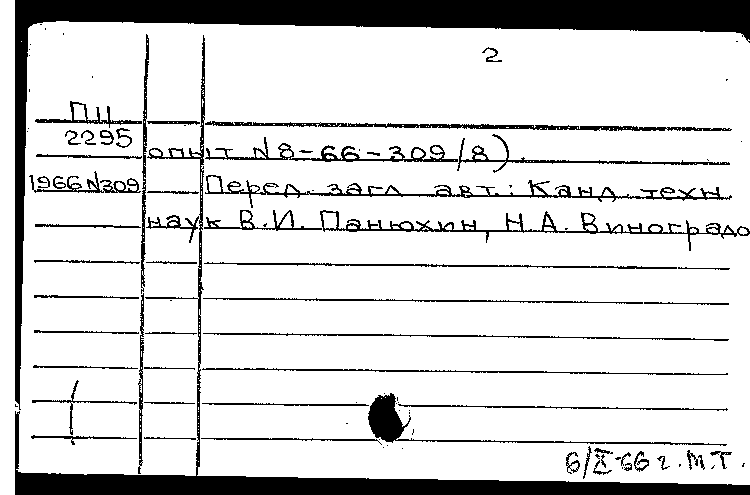 2
П11
2295
опыт N 8-66-309/8).
1966 N309
Перед загл. авт.: Канд. техн.
наук В.И. Панюхин, Н.А. Виноградо
6/X-66 г. М.Т.